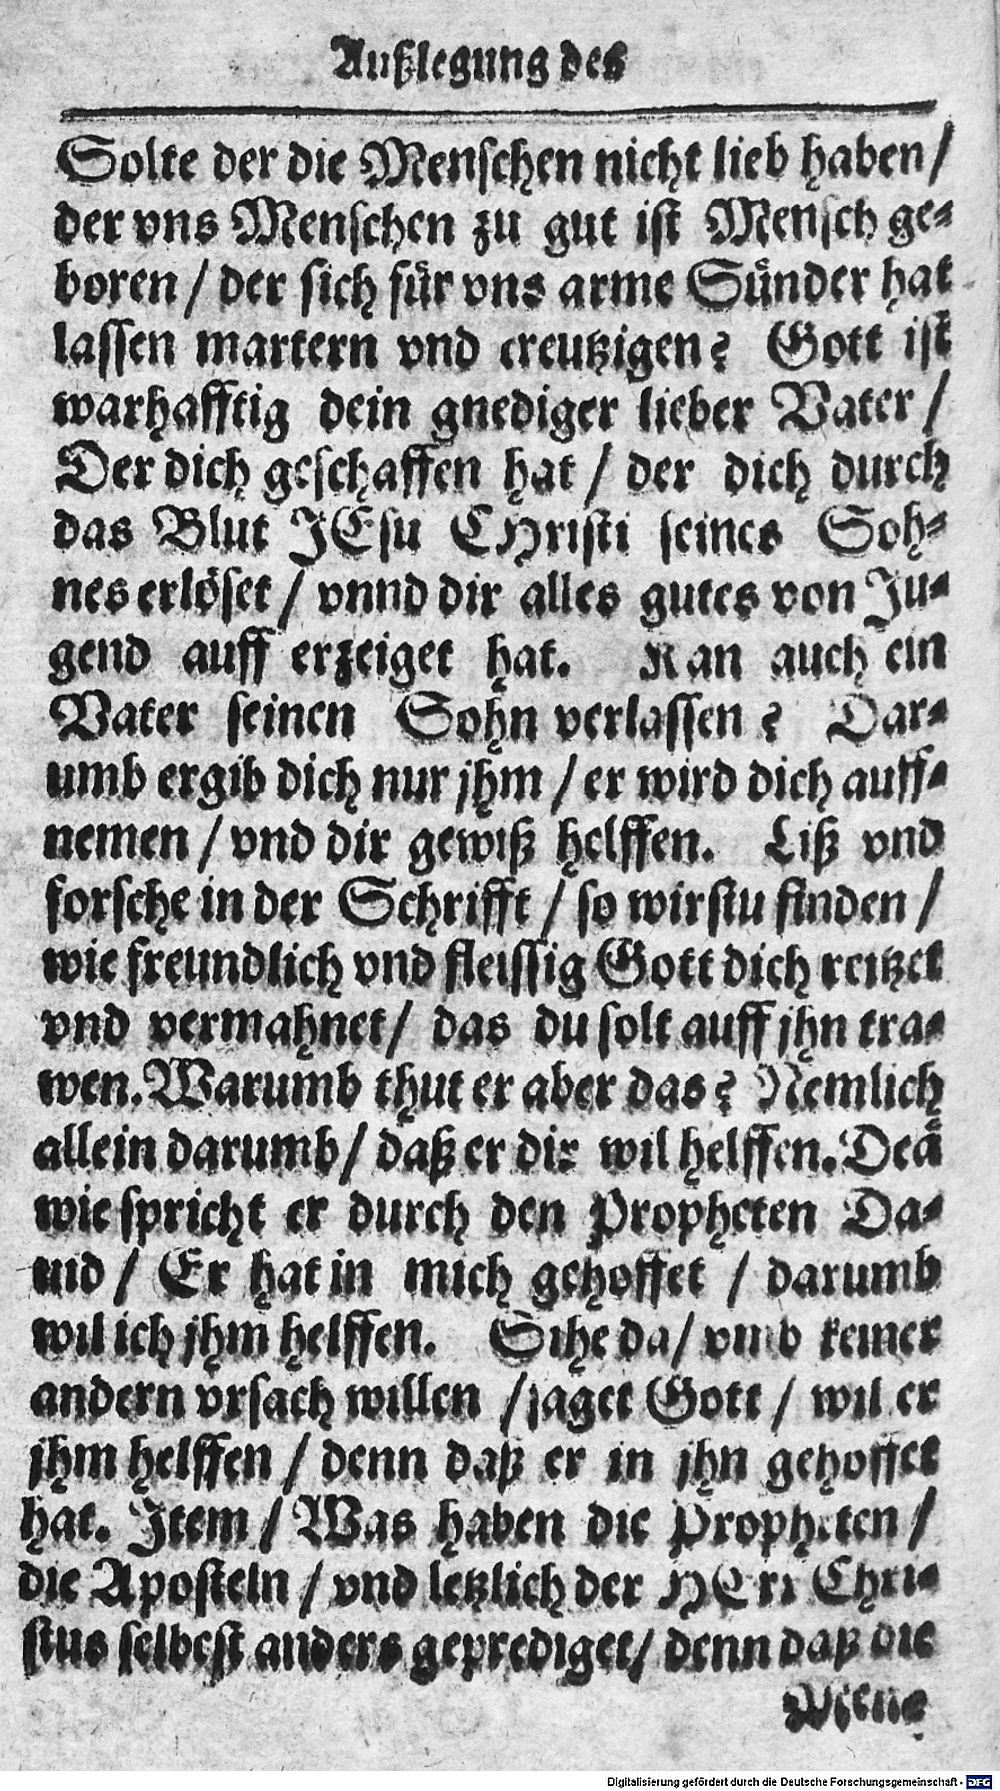 Außlegung des
Solte der die Menschen nicht lieb haben/
der vns Menschen zu gut ist Mensch ge-
boren / der sich für vns arme Sünder hat
lassen martern vnd creutzigen? Gott ist
warhafftig dein gnediger lieber Vater /
Der dich geschaffen hat / der dich durch
das Blut JEsu CHristi seines Soh-
nes erlöset / vnnd dir alles gutes von Ju-
gend auff erzeiget hat. Kan auch ein
Vater seinen Sohn verlassen? Dar-
umb ergib dich nur jhm / er wird dich auff-
nemen / vnd dir gewiß helffen. Liß vnd
forsche in der Schrifft / so wirstu finden /
wie freundlich vnd fleissig Gott dich reitzet
vnd vermahnet/ das du solt auff jhn tra-
wen. Warumb thut er aber das? Nemlich
allein darumb/ daß er dir wil helffen. Deñ
wie spricht er durch den Propheten Da-
uid / Er hat in mich gehoffet / darumb
wil ich jhm helffen. Sihe da/ vmb keiner
andern vrsach willen / saget Gott / wil er
jhm helffen / denn daß er in jhn gehoffet
hat. Item / Was haben die Propheten /
die Aposteln / vnd letzlich der HErr Chri-
stus selbest anders geprediget/ denn daß die